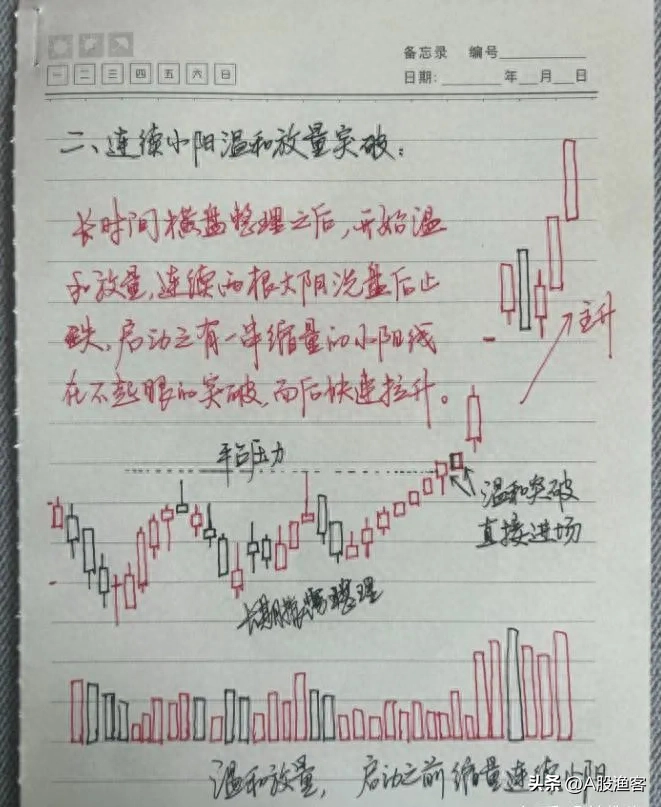 备忘录 编号
一 二 三 四 五 六 日
日期: 年 月 日
二、连续小阳温和放量突破:
长时间横盘整理之后,开始温
和放量,连续两根大阳洗盘后止
跌,启动之有一串缩量的小阳线
在不起眼的突破,而后快速拉升。
主升
平台压力
温和突破
直接进场
长期横盘整理
温和放量, 启动之前缩量连续小阳
头条 @A股渔客